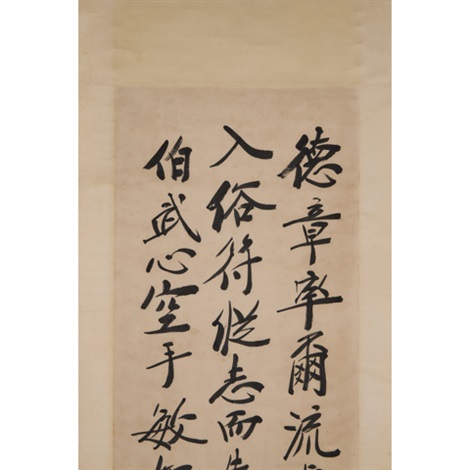 德章率爾流
入俗符從志而
伯武心空手敏